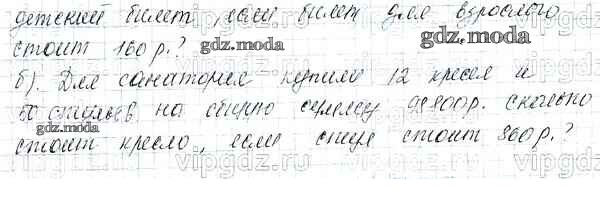 детский билет, если билет для взрослого
стоит 160 р.?
б). Для санатория купили 12 кресел и
50 стульев на общую сумму 98800р. сколько
стоит кресло, если стул стоит 860р.?
gdz.moda
gdz.moda
gdz.moda
vipgdz.ru
vipgdz.ru